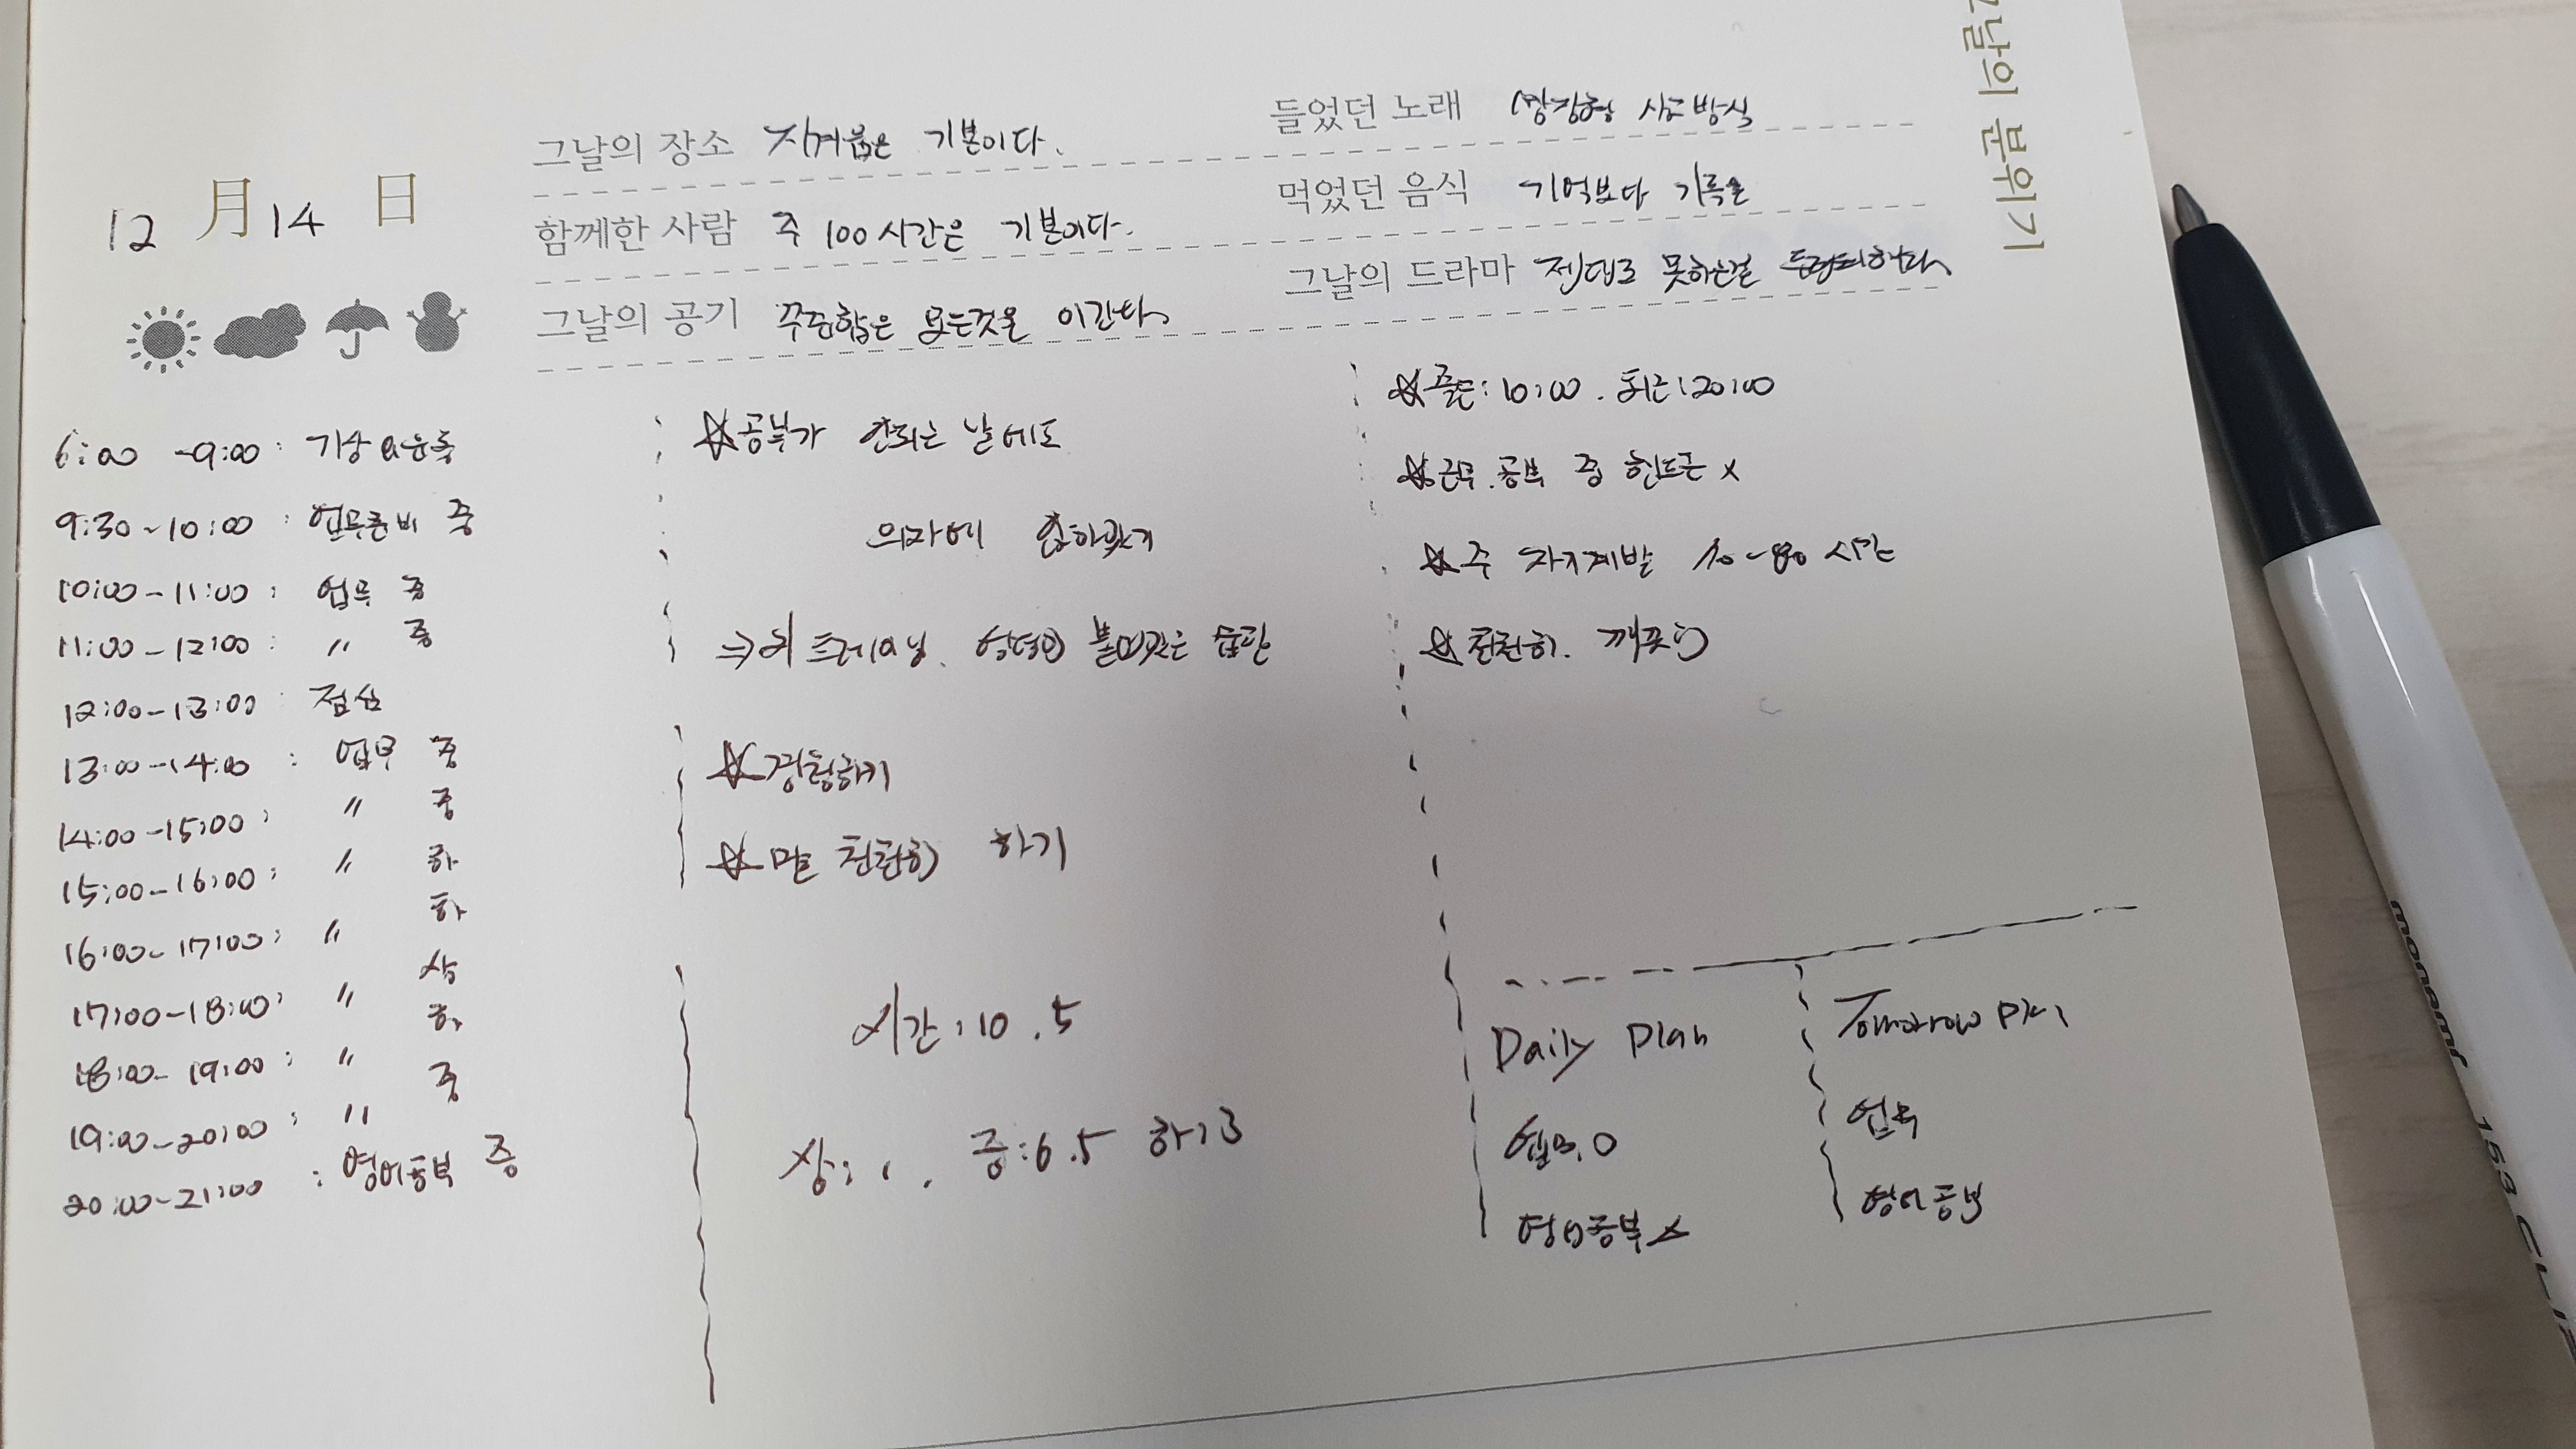 그날의 분위기
12 月 14 日
그날의 장소 지겨움은 기본이다.
함께한 사람 주 100시간은 기본이다.
그날의 공기 꾸준함은 모든것을 이긴다.
들었던 노래 성장형 사고방식
먹었던 음식 기억보다 기록을
그날의 드라마 제대로 못하는걸
6:00 -9:00: 기상 & 운동
9:30~10:00: 업무준비 중
10:00-11:00: 업무 중
11:00-12:00: 〃 중
12:00-13:00: 점심
13:00-14:00: 업무 중
14:00-15:00: 〃 중
15:00-16:00: 〃 하
16:00-17:00: 〃 하
17:00-18:00: 〃 상
18:00-19:00: 〃 하
19:00-20:00: 〃 중
20:00-21:00: 영어공부 중
☆공부가 안되는 날에도
의자에 앉아있기
⇒ 뇌 트레이닝. 붙어있는 습관
☆경청하기
☆말 천천히 하기
시간:10.5
상:1. 중:6.5 하:3
☆출근:10:00. 퇴근:20:00
☆근무.공부 중 핸드폰 x
☆주 자기계발 시간
☆천천히. 깨끗이
Daily Plan
업무. O
영어공부 △
Tomorrow Plan
업무
영어공부
monami 153